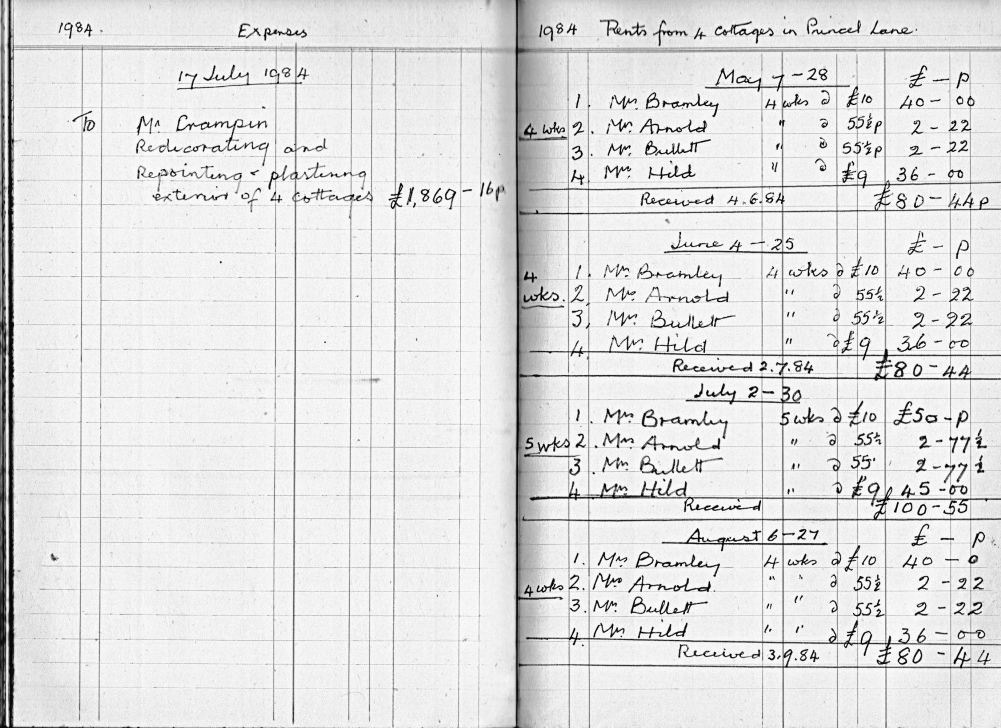 1984.
Expenses
17 July 1984
To Mr Crampin
Redecorating and
Repointing & plastering
exterior of 4 cottages £1,869 - 16p
1984 Rents from 4 cottages in Princel Lane.
May 7 - 28 £ - p
1. Mrs Bramley 4 wks @ £10 40 - 00
4 wks 2. Mrs Arnold " @ 55½p 2 - 22
3. Mr. Bullett " @ 55½p 2 - 22
4 Mrs Hild " @ £9 36 - 00
Received 4.6.84 £80 - 44p
June 4 - 25 £ - p
4 1. Mrs Bramley 4 wks @ £10 40 - 00
wks. 2. Mrs Arnold " @ 55½ 2 - 22
3, Mr. Bullett " @ 55½ 2 - 22
4. Mrs Hild " @ £9 36 - 00
Received 2.7.84 £80 - 44
July 2 - 30
1. Mrs Bramley 5 wks @ £10 £50 - p
5 wks 2. Mrs Arnold " @ 55½ 2 - 77½
3. Mr. Bullett " @ 55' 2 - 77½
4. Mrs Hild " @ £9 45 - 00
Received £100 - 55
August 6 - 27 £ - p
1. Mrs Bramley 4 wks @ £10 40 - 0
4 wks 2. Mrs Arnold. " " @ 55½ 2 - 22
3. Mr. Bullett " " @ 55½ 2 - 22
4. Mrs Hild " " @ £9 36 - 00
Received 3.9.84 £80 - 44